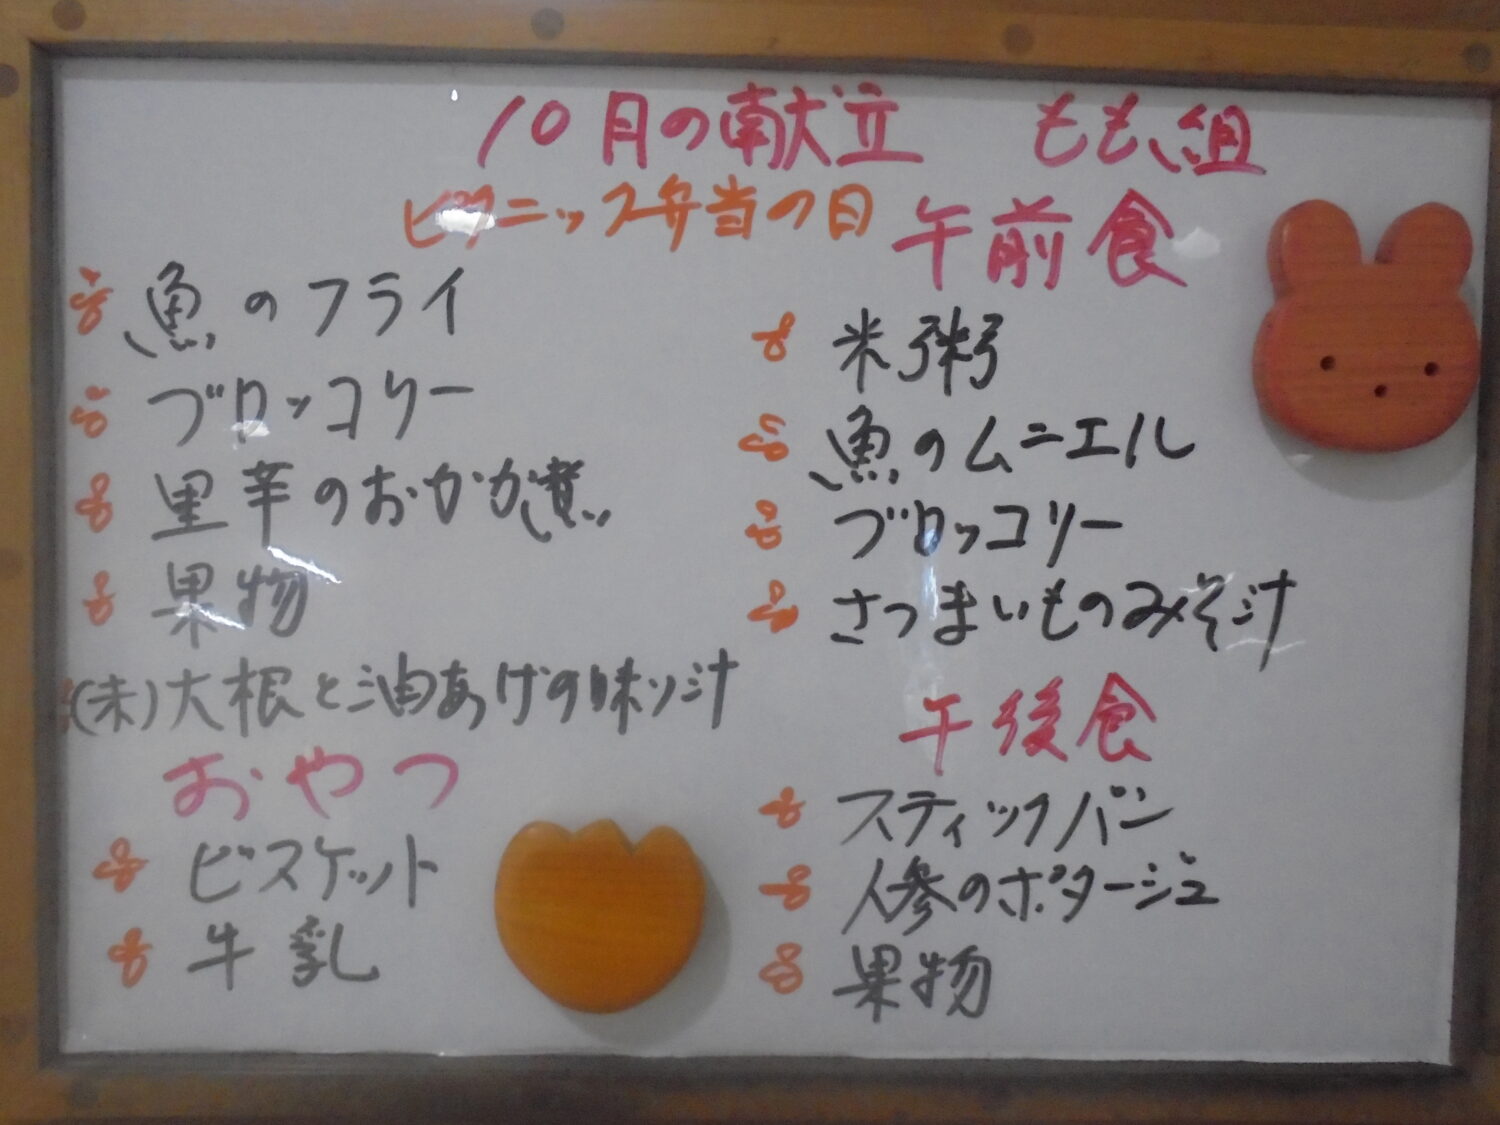 10月の献立 もも組
ピクニック弁当の日
魚のフライ
ブロッコリー
里芋のおかか煮
果物
(未)大根と油あげの味ソ汁
おやつ
ビスケット
牛乳
午前食
米粥
魚のムニエル
ブロッコリー
さつまいものみそ汁
午後食
スティックパン
人参のポタージュ
果物